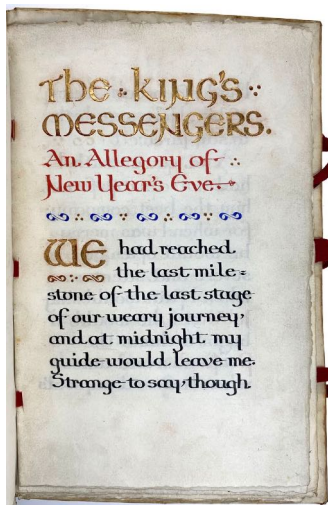 The king's
messengers.
An Allegory of
New Year's Eve.
We had reached
the last mile=
stone of the last stage
of our weary journey,
and at midnight my
guide would leave me.
Strange to say, though,